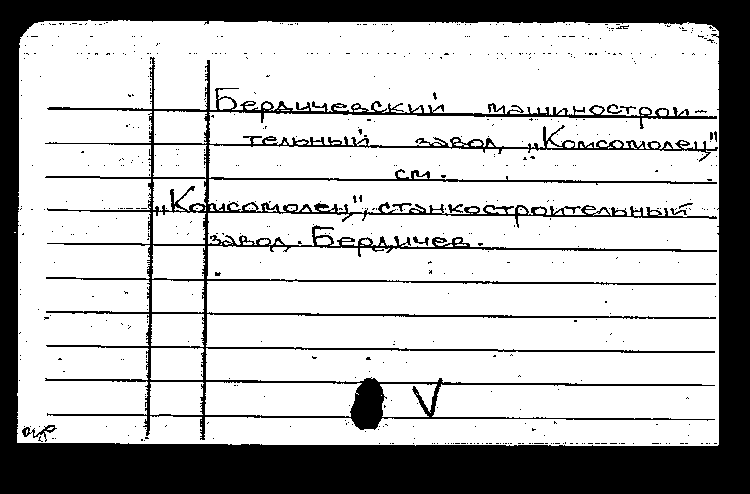 Бердичевский машинострои-
тельный завод „Комсомолец"
см.
„Комсомолец", станкостроительный
завод. Бердичев.
V